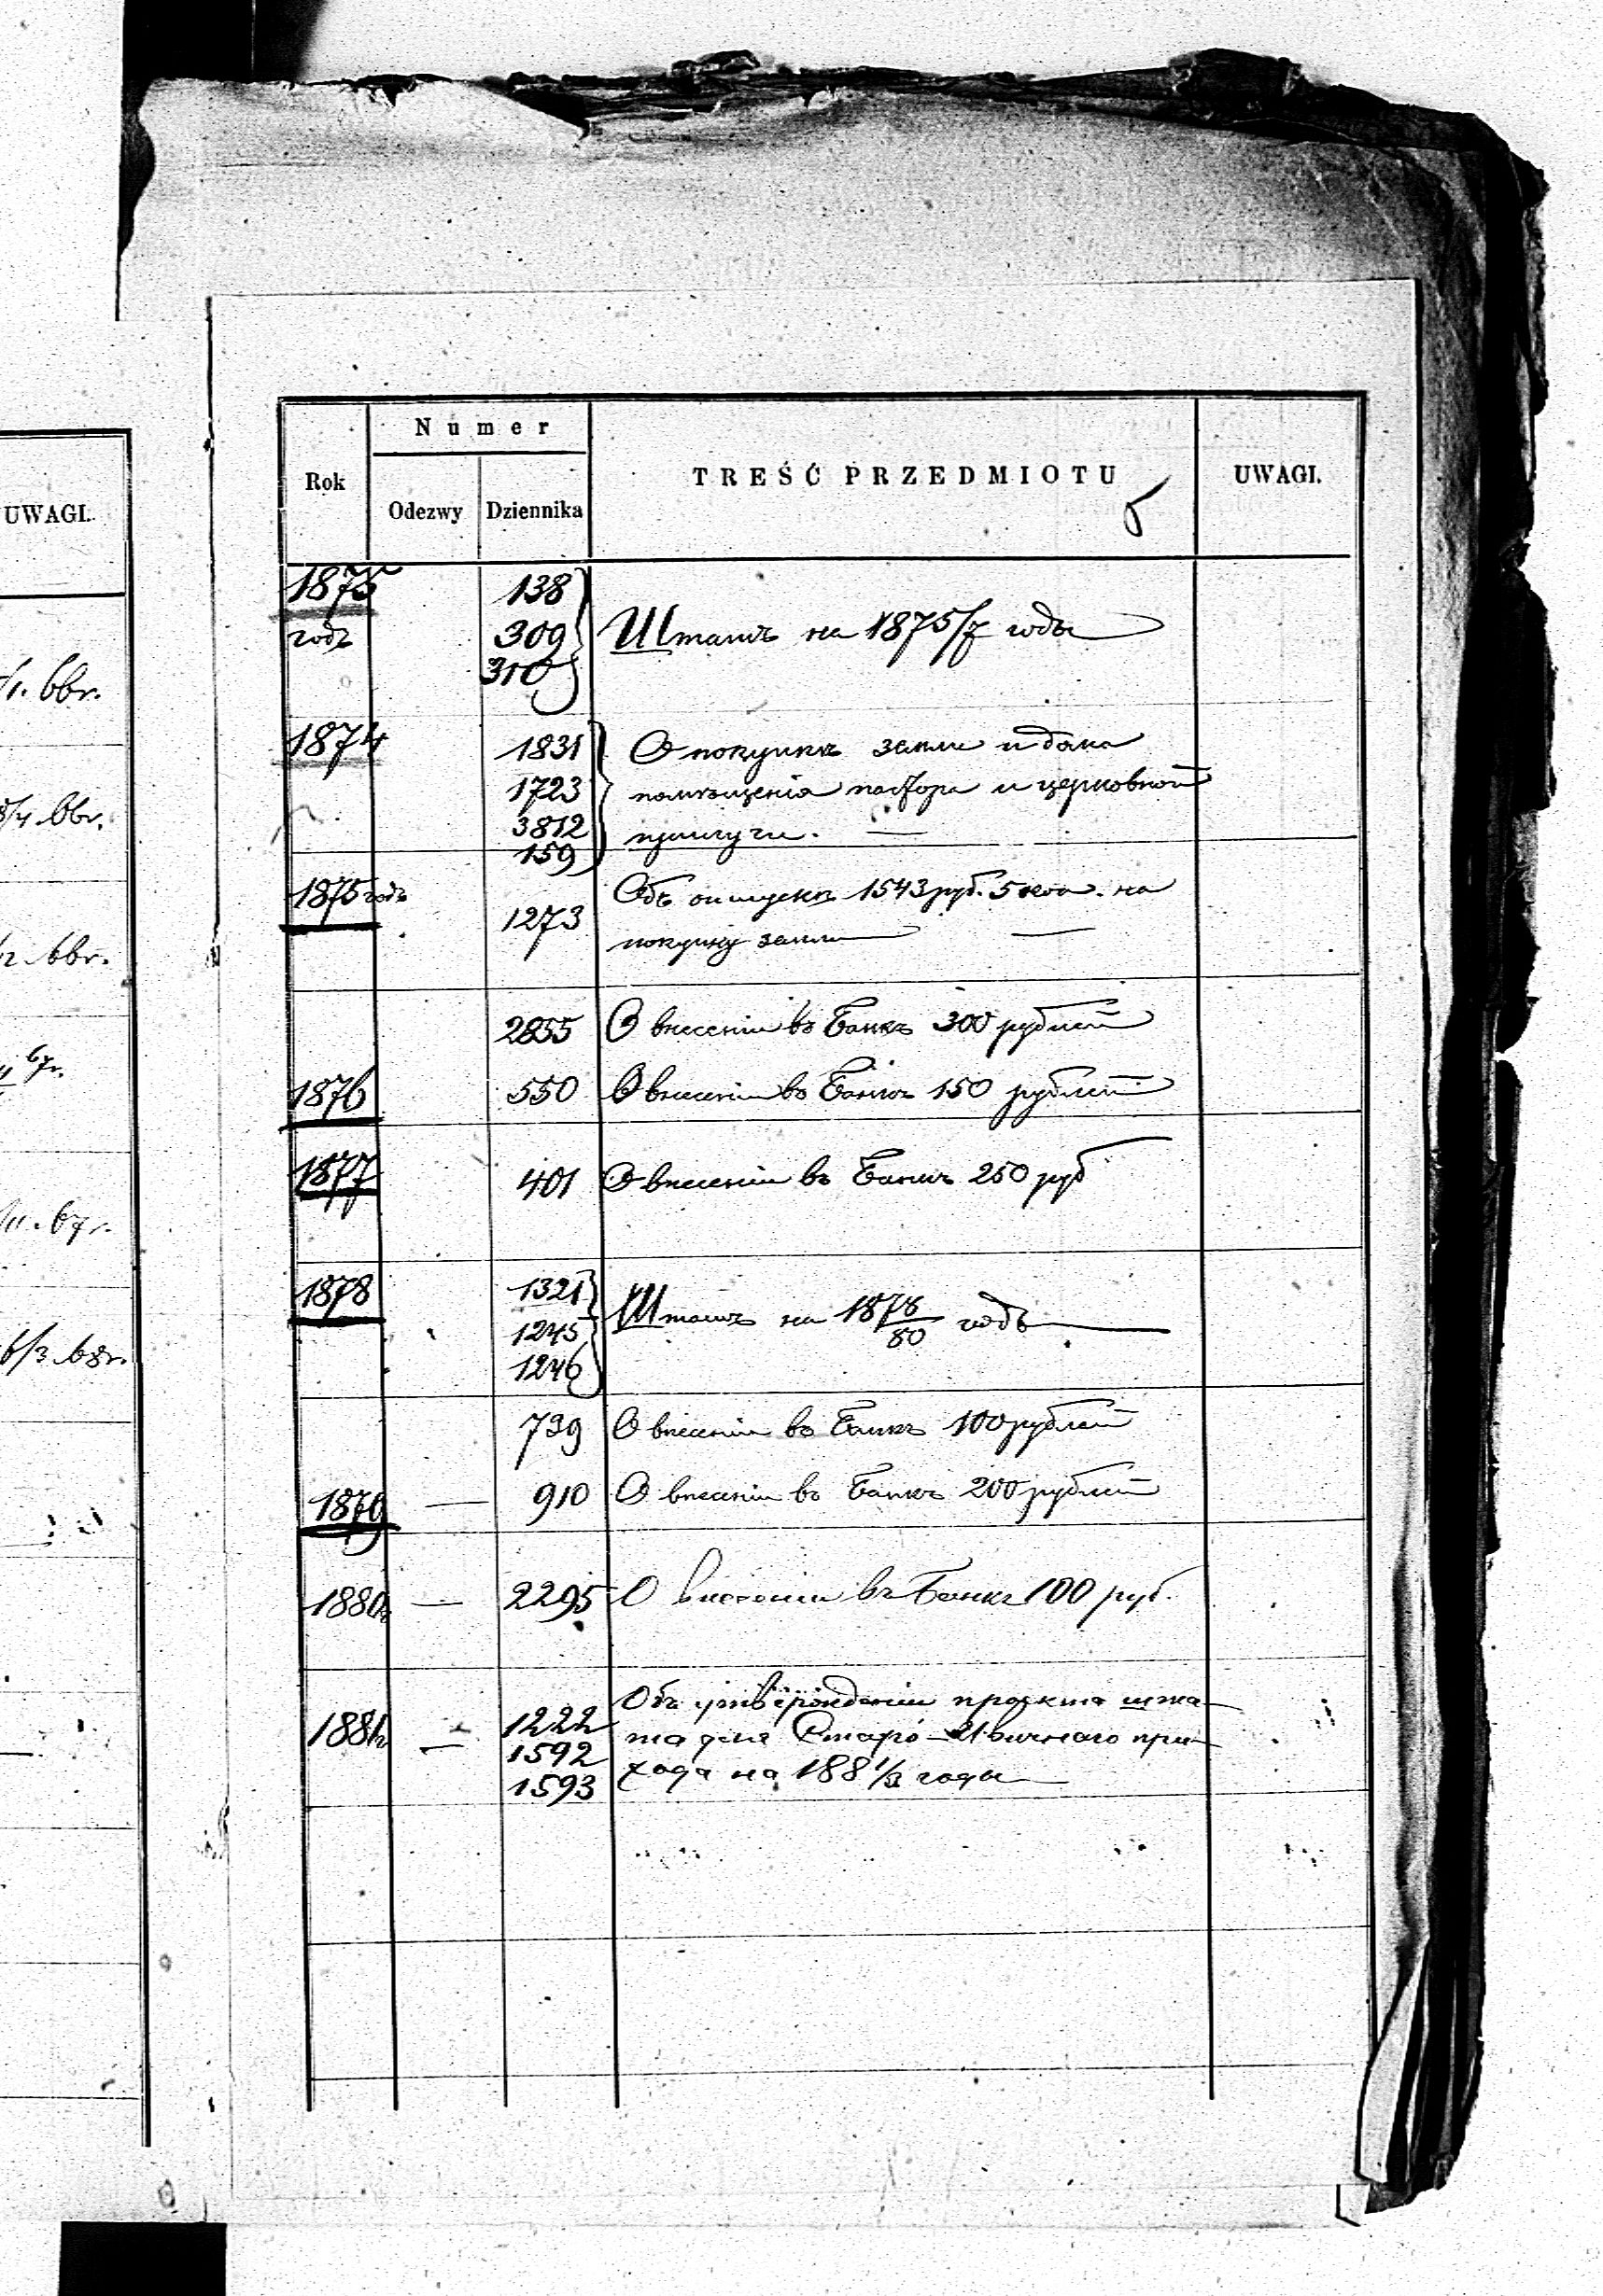 UWAGI.
/1. 66r.
8/4 66r.
/2 66r.
67r.
/11. 67r.
6/3 68r.
Rok
Numer
Odezwy
Dziennika
TREŚĆ PRZEDMIOTU
UWAGI.
1875
годъ
138
309
310
Штатъ на 1875/7 годы
1874
1831
1723
3812
159
О покупкѣ земли и дома
помѣщенія пастора и церковной
прислуги.
1875 годъ
1273
Объ отпускѣ 1543 руб. 5 коп. на
покупку земли
2855
О внесеніи въ Банкъ 300 рублей
1876
550
О внесеніи въ Банкъ 150 рублей
1877
401
О внесеніи въ Банкъ 250 руб
1878
1321
1245
1246
Штатъ на 1878/80 годъ
739
О внесеніи въ Банкъ 100 рублей
1879 —
910
О внесеніи въ Банкъ 200 рублей
1880г —
2295
О внесеніи въ Банкъ 100 руб.
1881г —
1222
1592
1593
Объ утвержденіи проэкта шта-
та для Старо-Ивичнаго при-
хода на 1881/3 годы